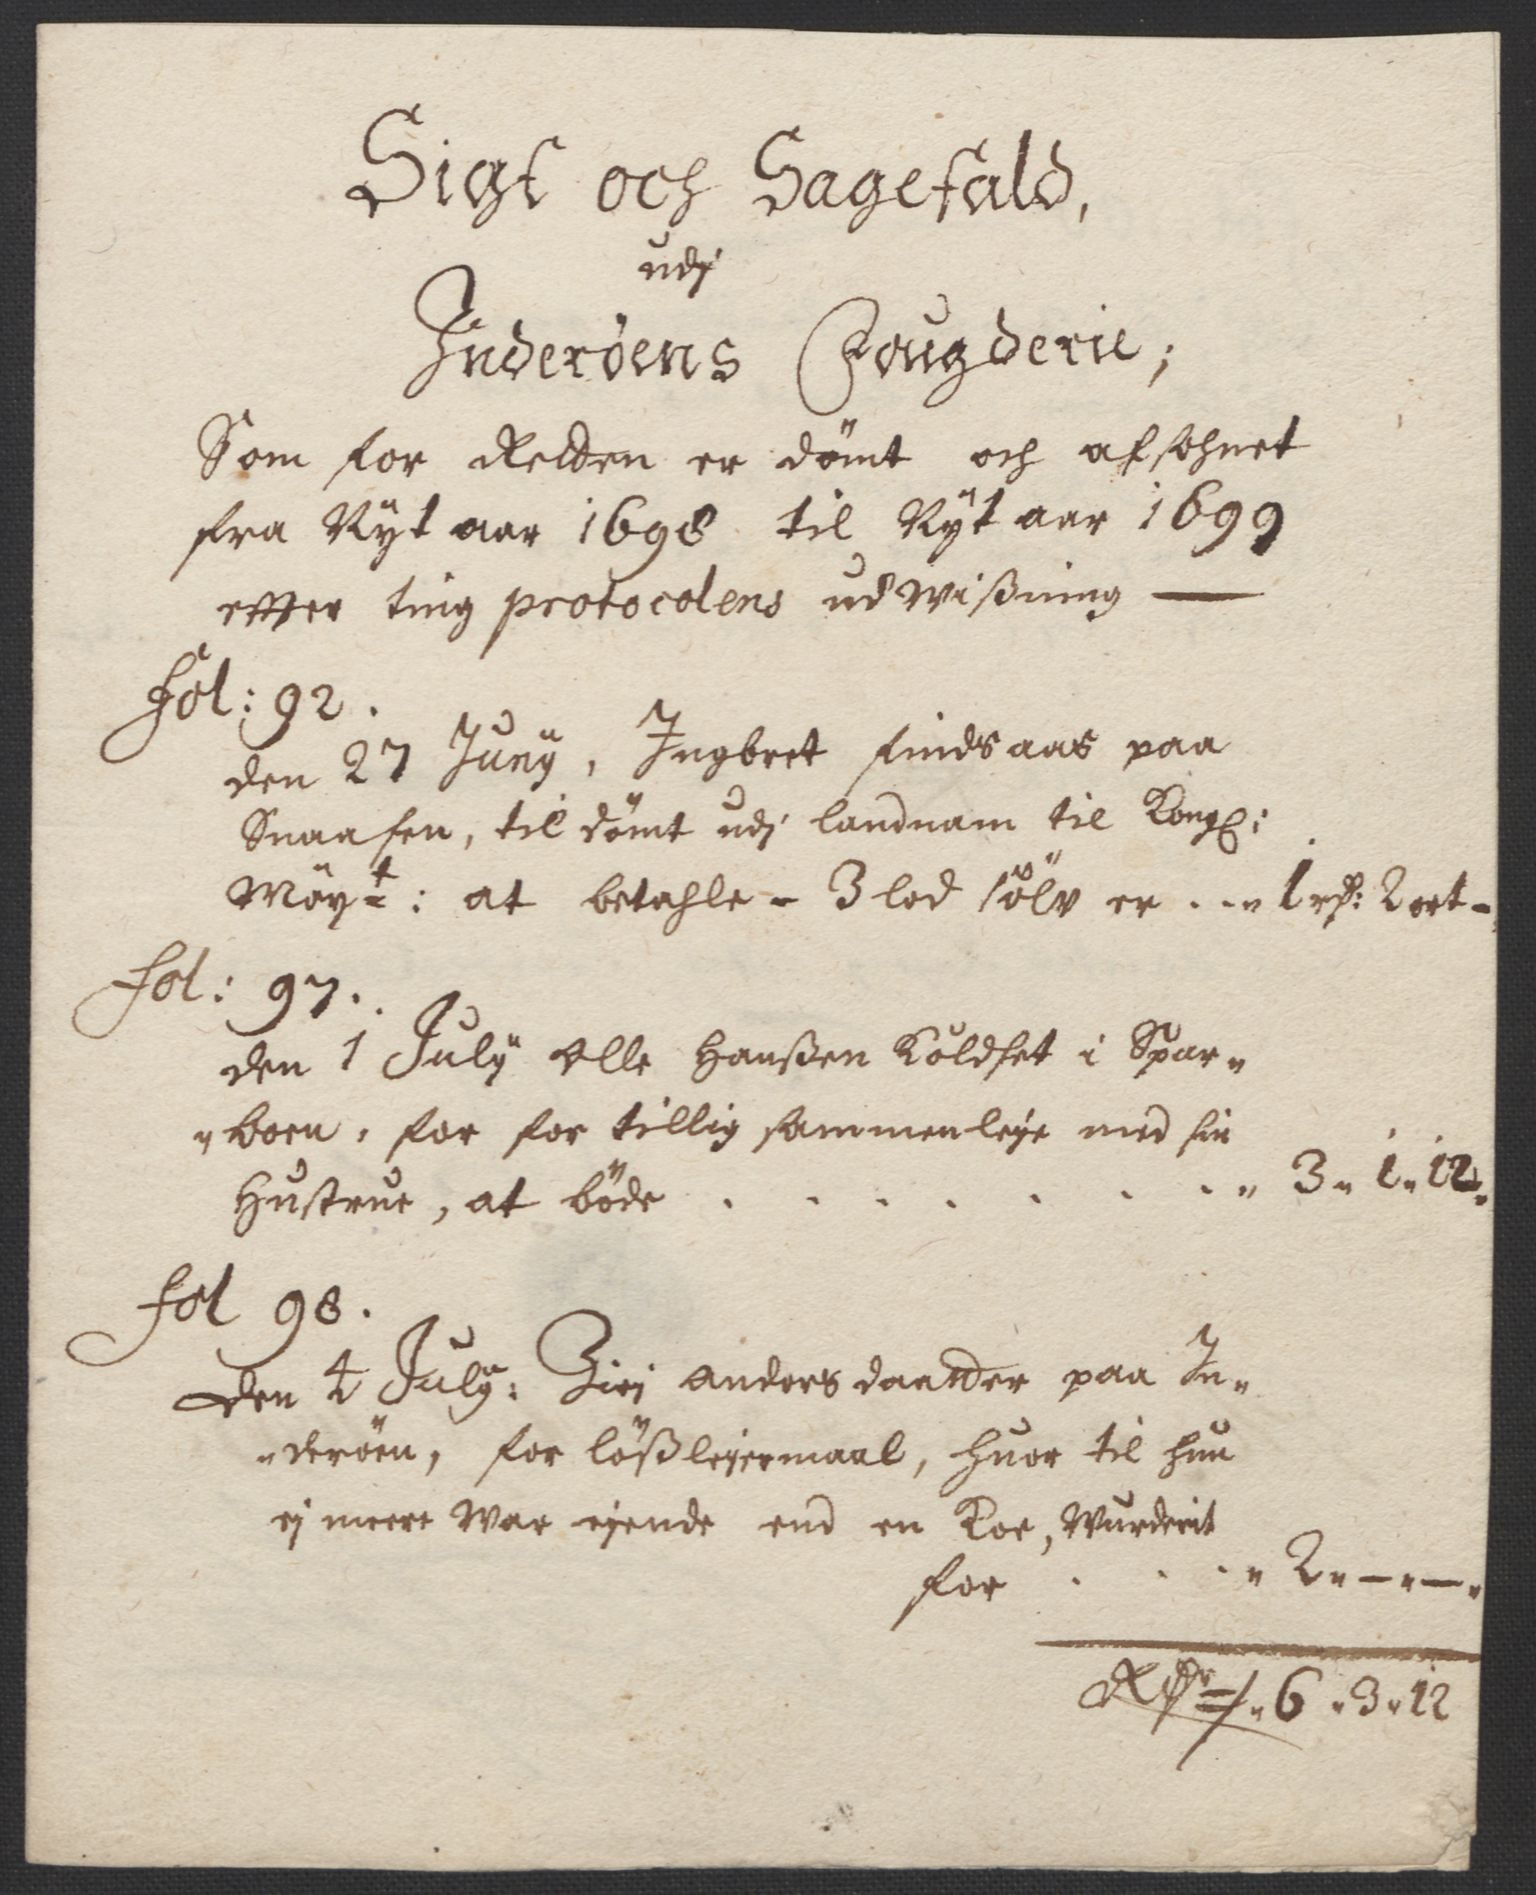 Sigt och Sagefald,
udj
Inderöens Fougderie;
Som for Retten er dömt och afsohnet
fra Nÿt aar 1698 til Nÿt aar 1699
effter ting protocolens udwißning —
Fol: 92.
den 27 Junÿ, Ingbret findsaas paa
Snaasen, til dömt udj landnam til Kongl:
Maÿt: at betahle - 3 lod sölv er . . „ 1 rd: 2 ort -
Fol: 97.
den 1 Julÿ Olle Hanßen Koldset i Spar„
„boen, for for tillig sammenleye med sin
Hustrue, at böde . . . . . . . „ 3 „ 1 „ 12 „
Fol 98.
den 4 Julÿ: Ziri andersdaatter paa In„
„deröen, for lößleyermaal, huor til hun
ej meere war ejende end en Koe, Wurderit
for . . . „ 2 „ — „ — „
Rdr „ 6 „ 3 „ 12